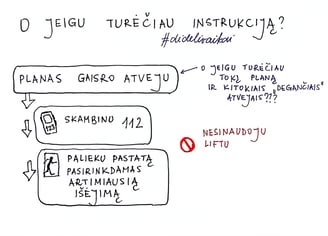 O JEIGU TURĖČIAU INSTRUKCIJĄ?
#didelivaikai
PLANAS GAISRO ATVEJU
O JEIGU TURĖČIAU
TOKĮ PLANĄ
IR KITOKIAIS „DEGANČIAIS"
ATVEJAIS???
SKAMBINU 112
NESINAUDOJU
LIFTU
PALIEKU PASTATĄ
PASIRINKDAMAS
ARTIMIAUSIĄ
IŠĖJIMĄ